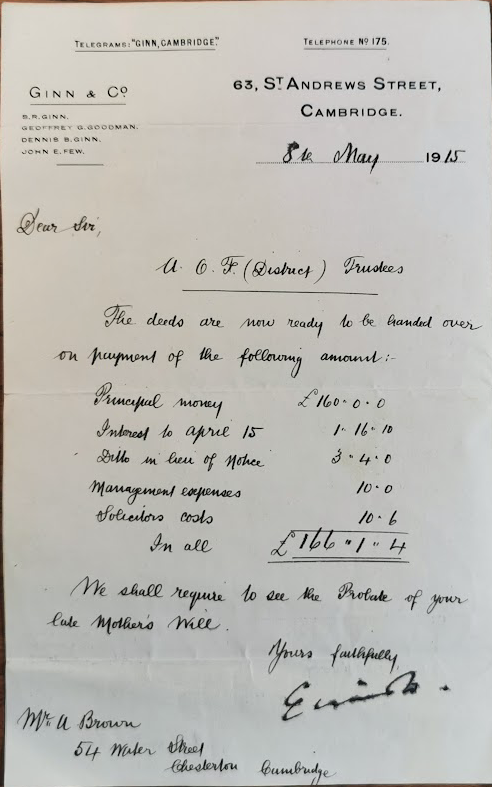 TELEGRAMS: "GINN, CAMBRIDGE."
TELEPHONE Nº 175.
GINN & Cº
S.R. GINN.
GEOFFREY G. GOODMAN.
DENNIS B. GINN.
JOHN E. FEW.
63, ST ANDREWS STREET,
CAMBRIDGE.
8th May 1915
Dear Sir,
A. O. F. (District) Trustees
The deeds are now ready to be handed over
on payment of the following amount:-
Principal money £160 . 0 . 0
Interest to April 15 1 . 16 . 10
Ditto in lieu of Notice 3 . 4 . 0
Management expenses 10 . 0
Solicitors costs 10 . 6
In all £166 " 1 " 4
We shall require to see the Probate of your
late Mother's Will.
Yours faithfully,
Mr. A Brown
54 Water Street
Chesterton Cambridge